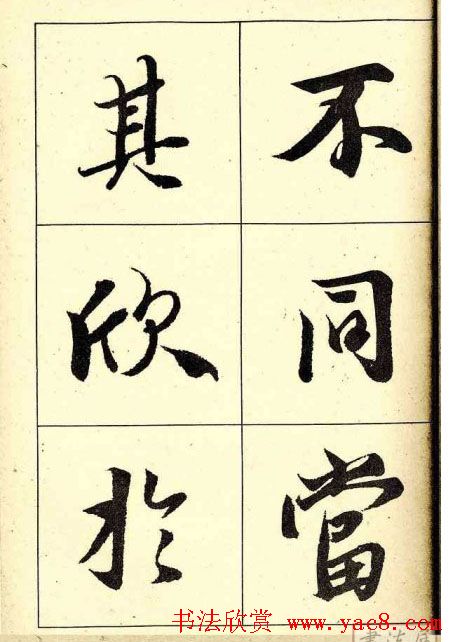 不同當
其欣於
书法欣赏 www.yac8.com